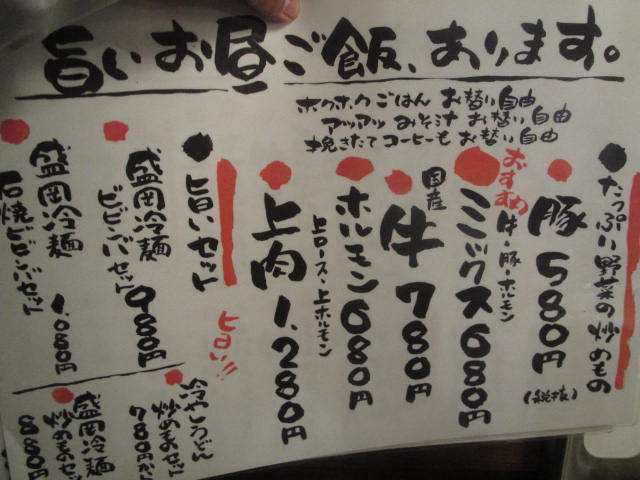 旨いお昼ご飯、あります。
ホクホクごはん お替り自由
アツアツ みそ汁 お替り 自由
挽きたてコーヒーも お替り 自由
たっぷり野菜の炒めもの
豚 580円
(税抜)
おすすめ
牛・豚・ホルモン
ミックス 680円
国産
牛 780円
ホルモン 680円
上ロース・上ホルモン
上肉 1,280円
旨いセット
旨い!!
盛岡冷麺
ビビンバセット 980円
盛岡冷麺
石焼ビビンバセット 1,080円
冷やしうどん
炒めものセット
780円から
盛岡冷麺
炒めものセット
880円